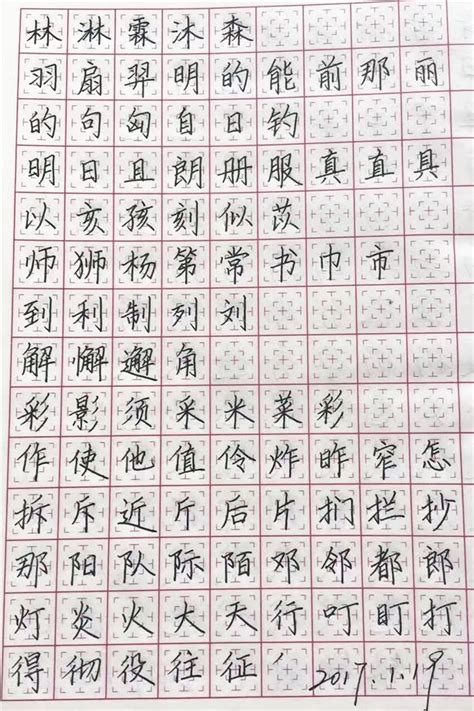 林淋霖沐森
羽扇羿明的能前那丽
的句匈自日钓
明日且朗册服真直具
以亥孩刻似苡
师狮杨第常书巾市
到利制列刘
解懈邂角
彩影须采米菜彩
作使他值伶炸昨窄怎
拆斥近斤后片扪拦抄
那阳队际陌邓邻都郎
灯炎火大天行叮盯打
得彻役往征亻 2017.1.19